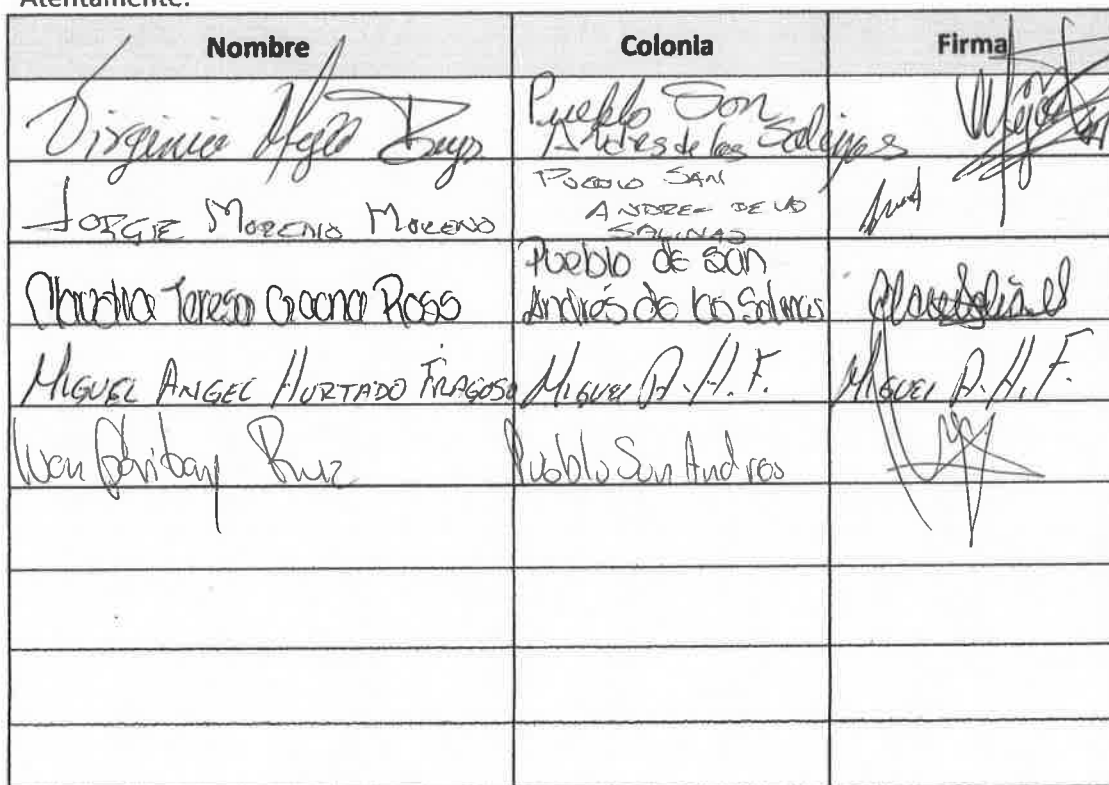 Atentamente.
Nombre Colonia Firma
Virginia Mejía Pueblo San
Andres de las Salinas
JORGE MORENO MORENO PUEBLO SAN
ANDRES DE LAS
SALINAS
Claudia Teresa Rosa Pueblo de San
Andrés de las Salinas
MIGUEL ANGEL HURTADO FRAGOSO MIGUEL A. H. F. MIGUEL A. H. F.
Ivan Garibay Ruiz Pueblo San Andres